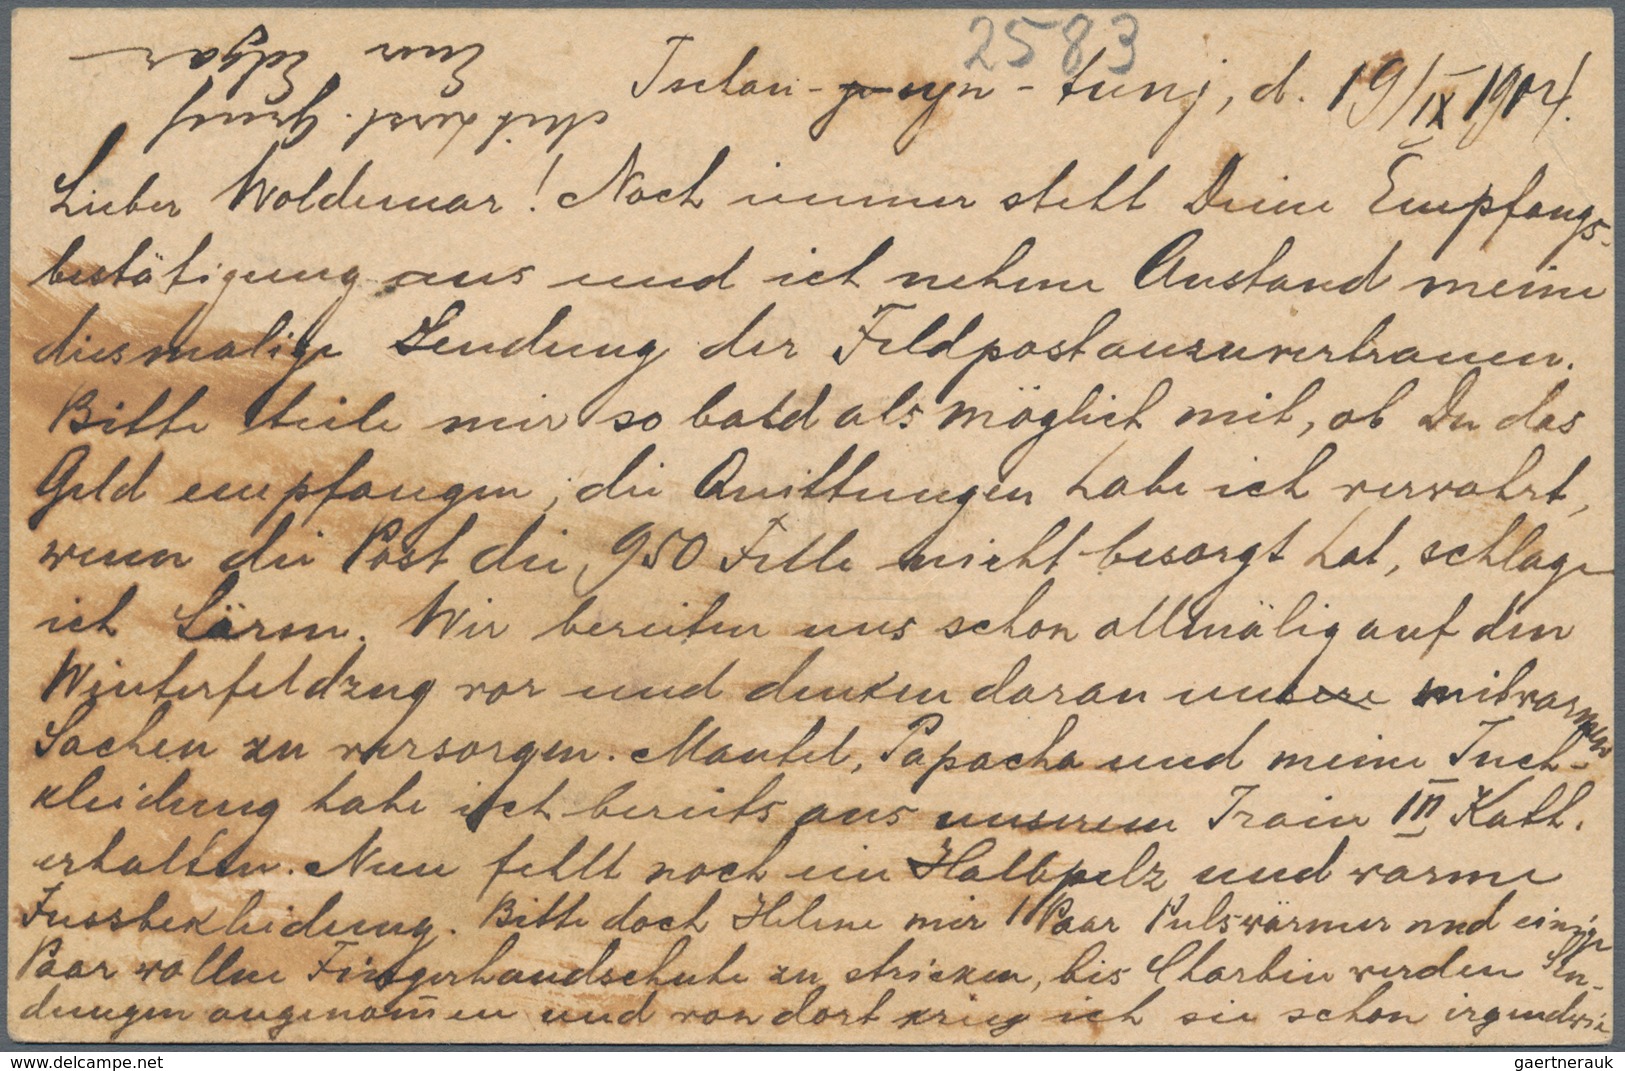 2583
Tschan-syn-tunj, d. 19/IX 1904.
Lieber Woldemar! Noch immer steht Deine Empfangs-
bestätigung aus und ich nehme Anstand meine
diesmalige Sendung der Feldpost anzuvertrauen.
Bitte teile mir so bald als möglich mit, ob Du das
Geld empfangen, die Quittungen habe ich verwahrt,
wenn die Post die 950 nicht besorgt hat, schlage
ich Lärm. Wir bereiten uns schon allmälig auf den
Winterfeldzug vor und denken daran uns mit warmen
Sachen zu versorgen. Mantel, Papacha und meine Tuch-
kleidung habe ich bereits aus unserem Train III Kath.
erhalten. Nun fehlt noch ein Halbpelz und warme
Fussbekleidung. Bitte doch Helene mir 1 Paar Pulswärmer und einige
Paar wollne Fingerhandschuhe zu stricken, bis Charbin werden Sen-
dungen angenom̄en und von dort krieg ich sie schon irgendwie
Mit herzl. Gruß
Euer Edgar
gaertnerauk